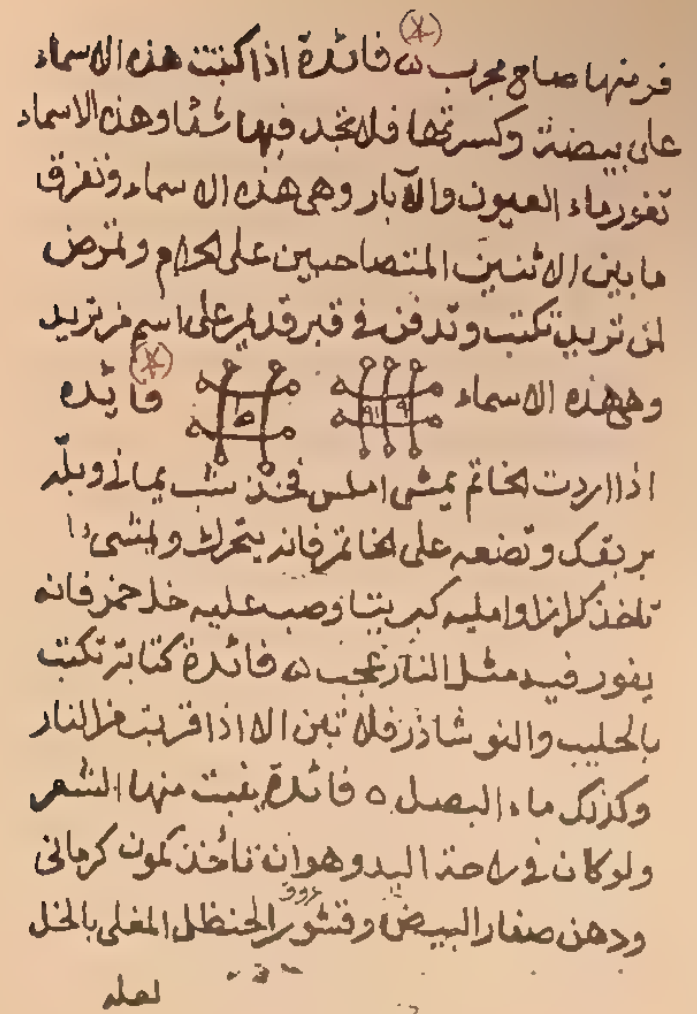 فرمنها صاح مجرب ه فائدة اذا كتبت هذه الاسماء
على بيضة وكسرتها فلا تجد فيها شئا وهذه الاسماء
تغور ماء العيون والآبار وهى هذه الاسماء وتفرق
ما بين الاثنين المتصاحبين على الحرام وتمرض
لمن تريد تكتب وتدفن فى قبر قديم على اسم من تريد
وهى هذه الاسماء فائده
اذا اردت الخاتم يمشى املس فخذ شب يمانى وبله
بريقك وتضعه على الخاتم فانه يتحرك ويمشى
تاخذ واملیه كبريتا وصب عليه خل خمر فانه
يفور فيه مثل النار عجب ه فائدة كتابة تكتب
بالحليب والنوشاذر فلا تبن الا اذا قربت من النار
وكذلك ماء البصل ه فائدة ينبت منها الشعر
ولو كان فى راحة اليد وهو ان تاخذ كمون كرمانى
ودهن صفار البيض وقشور عروق الحنظل المغلى بالخل
لعله